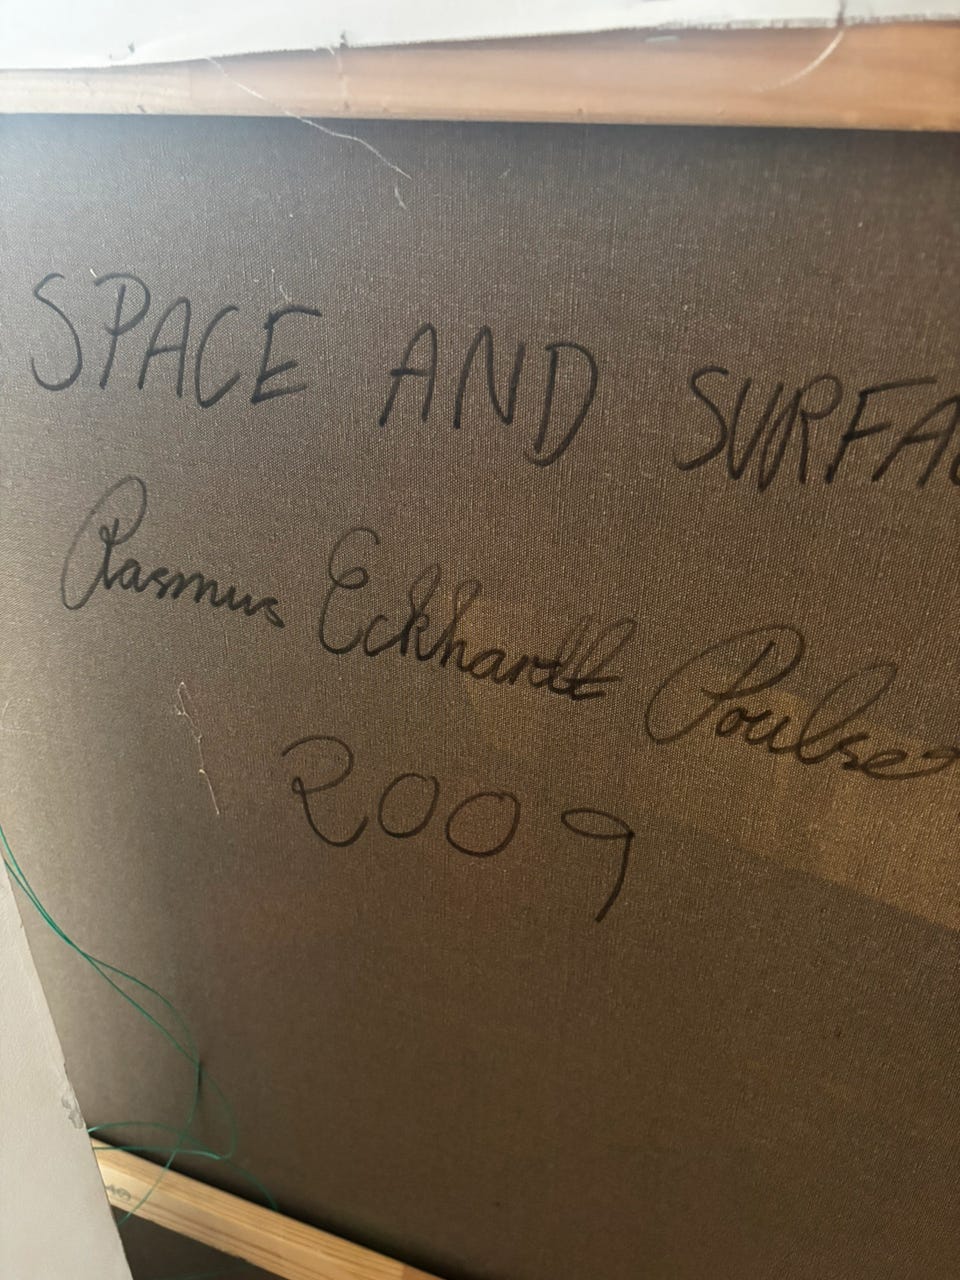 SPACE AND SURFAC
Rasmus Eckhardt Poulsen
2009